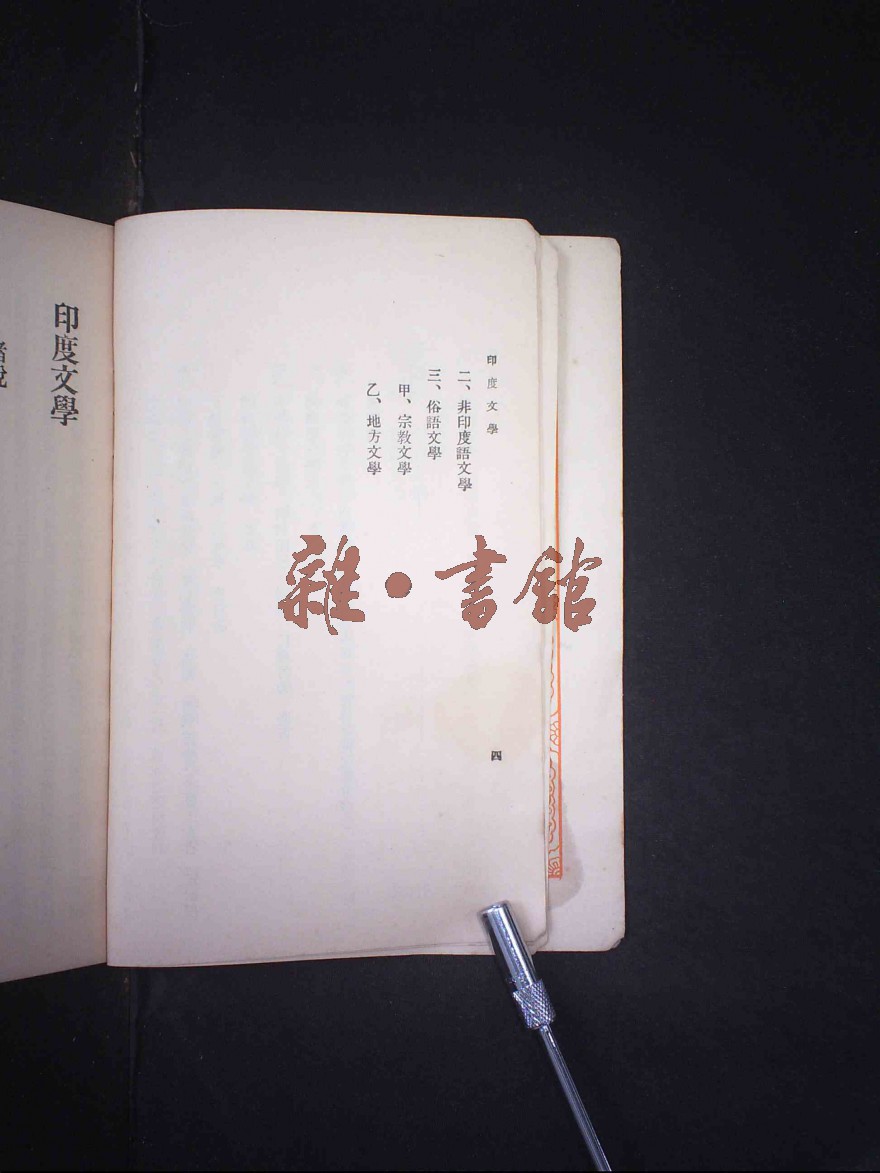 印度文學
二、非印度語文學
三、俗語文學
甲、宗教文學
乙、地方文學
四
印度文學
雜·書館